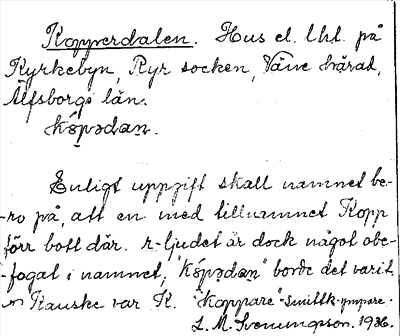 Kopperdalen. Hus el. lht. på
Kyrkebyn, Ryr socken, Väne härad,
Älfsborgs län.
kópədan.
Enligt uppgift skall namnet be-
-ro på, att en med tillnamnet Kopp
förr bott där. r-ljudet är dock något obe-
-fogat i namnet, "kópədan" borde det varit.
Kanske var K. "koppare"
L. M. Svenungsson. 1936.